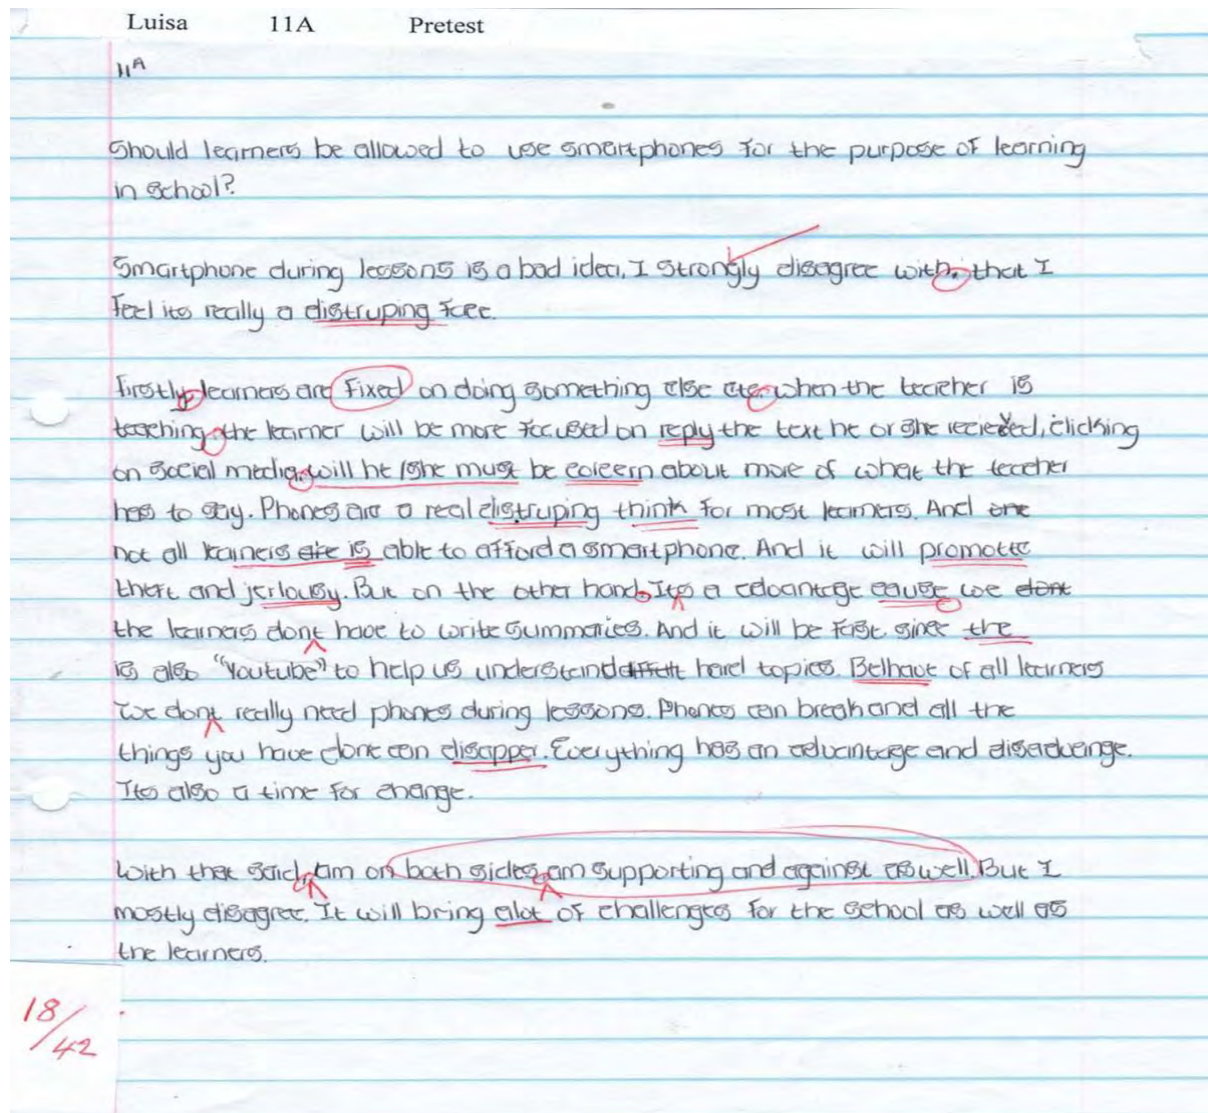 Luisa 11A Pretest
11A
Should learners be allowed to use smartphones for the purpose of learning
in school?
Smartphone during lessons is a bad idea, I strongly disagree with. that I
feel its really a distruping
Firstly, learners are fixed on doing something else when the teacher is
teaching, the learner will be more focused on reply the text he or she recieved, clicking
on social media, will he/she must be concern about more of what the teacher
has to say. Phones are a real distruping think for most learners. And
not all learners are is able to afford a smartphone. And it will promotte
theft and jerlousy. But on the other hand. Its a advantage cause we dont
the learners dont have to write summaries. And it will be fast since the
is also "Youtube" to help us understand hard topics. Belhave of all learners
we dont really need phones during lessons. Phones can break and all the
things you have done can disapper. Everything has an advantage and disadvange.
Its also a time for change.
With that said, am on both sides, am supporting and against as well. But I
mostly disagree. It will bring alot of challenges for the school as well as
the learners.
18/42